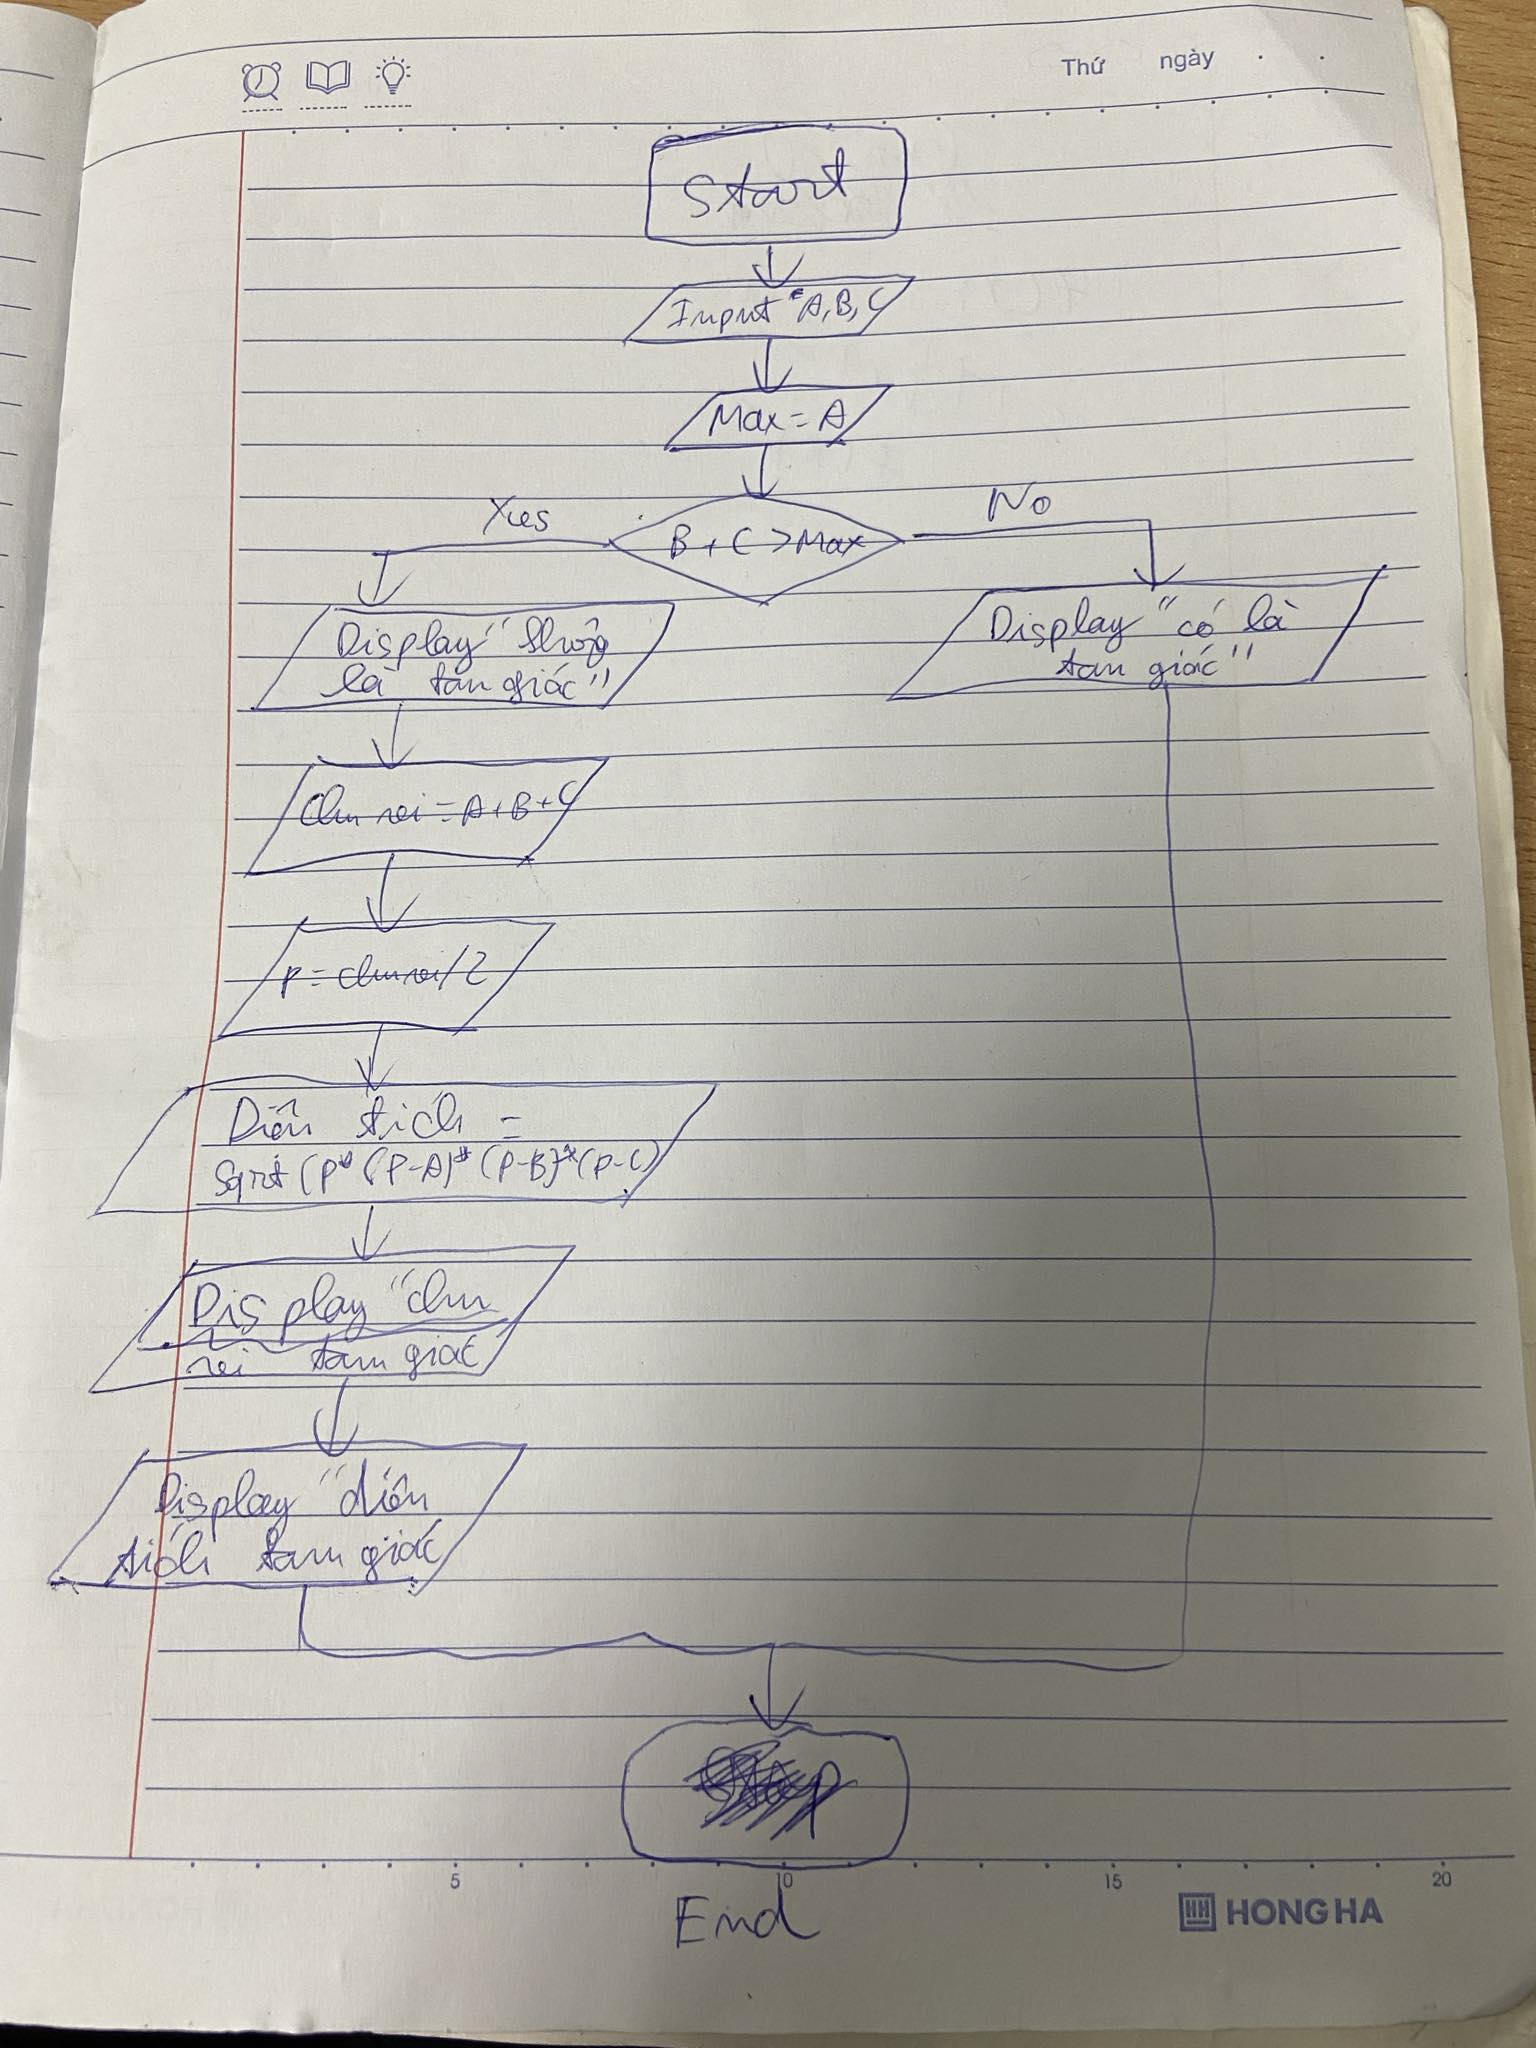 Thứ ngày
Start
Input A, B, C
Max = A
Yes
B + C > Max
No
Display "không
là tam giác"
Display "có là
tam giác"
Chu vi = A + B + C
P = chu vi / 2
Diên tích =
Sqrt (P* (P-A)* (P-B)* (P-C)
Display "chu
vi tam giác
Display "diên
tích tam giác
Stop
5 10 15 20
End
HONG HA